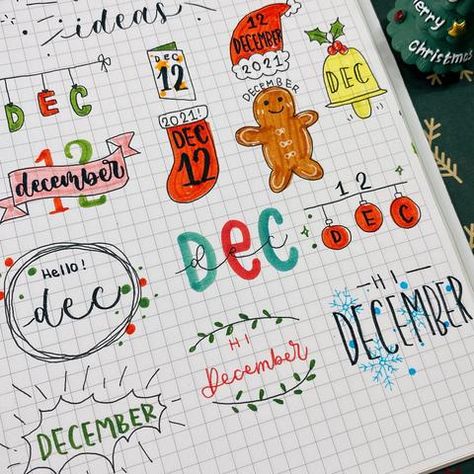 ideas
DEC
DEC
12
12
DECEMBER
2021
DEC
Merry
Christmas
12
december
2021!
DEC
12
DECEMBER
12
DEC
DEC
dec
Hello!
dec
HI
December
HI
DECEMBER
DECEMBER